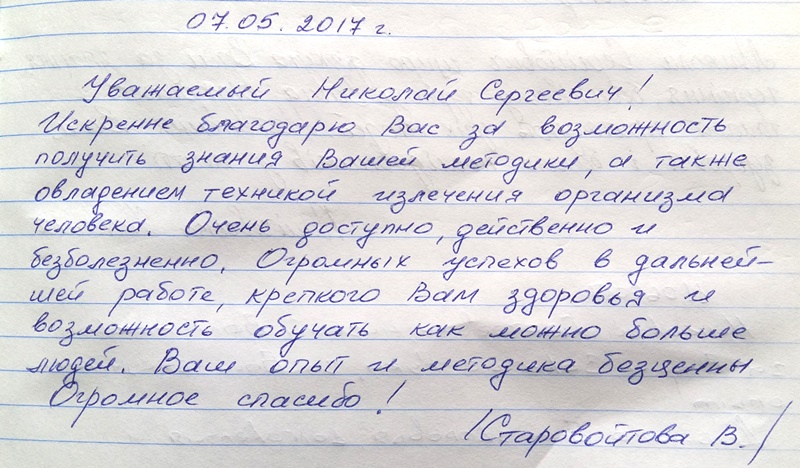 07.05.2017 г.
Уважаемый Николай Сергеевич!
Искренне благодарю Вас за возможность
получить знания Вашей методики, а также
овладением техникой излечения организма
человека. Очень доступно, действенно и
безболезненно. Огромных успехов в дальней-
шей работе, крепкого Вам здоровья и
возможность обучать как можно больше
людей. Ваш опыт и методика безценны
Огромное спасибо!
/Старовойтова В./